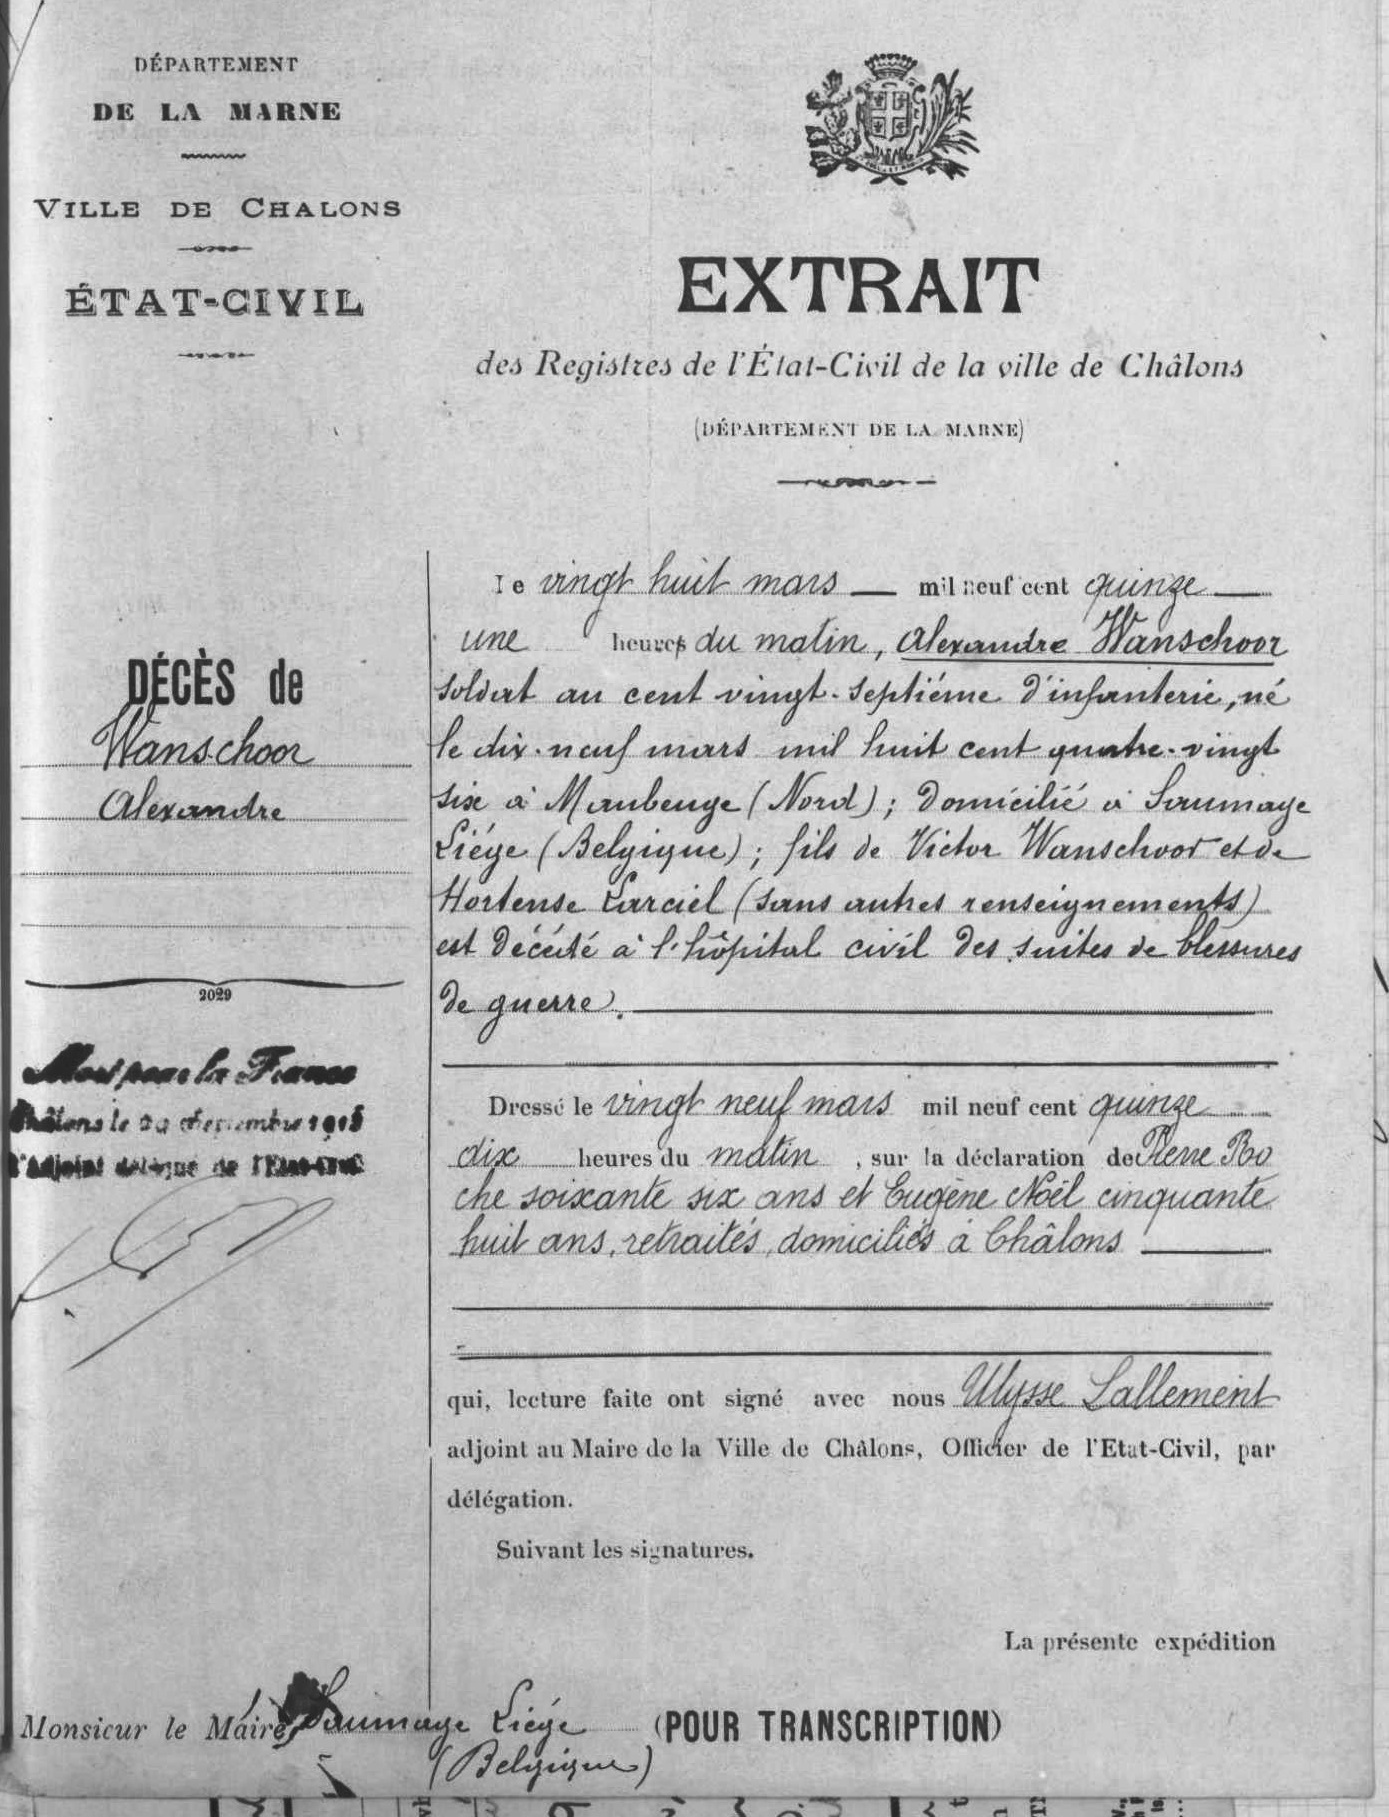 DÉPARTEMENT
DE LA MARNE
VILLE DE CHALONS
ÉTAT-CIVIL
EXTRAIT
des Registres de l'État-Civil de la ville de Châlons
(DÉPARTEMENT DE LA MARNE)
DÉCÈS de
Wanschoor
Alexandre
2029
Mort pour la France
Châlons le septembre 1915
l'Adjoint délégué de l'Etat-Civil
Le vingt huit mars — mil neuf cent quinze —
une heures du matin, Alexandre Wanschoor
soldat au cent vingt-septième d'infanterie, né
le dix-neuf mars mil huit cent quatre-vingt
six à Maubeuge (Nord); domicilié à Saumage
Liége (Belgique); fils de Victor Wanschoor et de
Hortense Larciel (sans autres renseignements)
est décédé à l'hôpital civil des suites de blessures
de guerre.
Dressé le vingt neuf mars mil neuf cent quinze
dix heures du matin, sur la déclaration de Pierre Ro
che soixante six ans et Eugène Noël cinquante
huit ans, retraités, domiciliés à Châlons
qui, lecture faite ont signé avec nous Ulysse Lallement
adjoint au Maire de la Ville de Châlons, Officier de l'Etat-Civil, par
délégation.
Suivant les signatures.
La présente expédition
Monsieur le Maire Saumage Liége (POUR TRANSCRIPTION)
(Belgique)